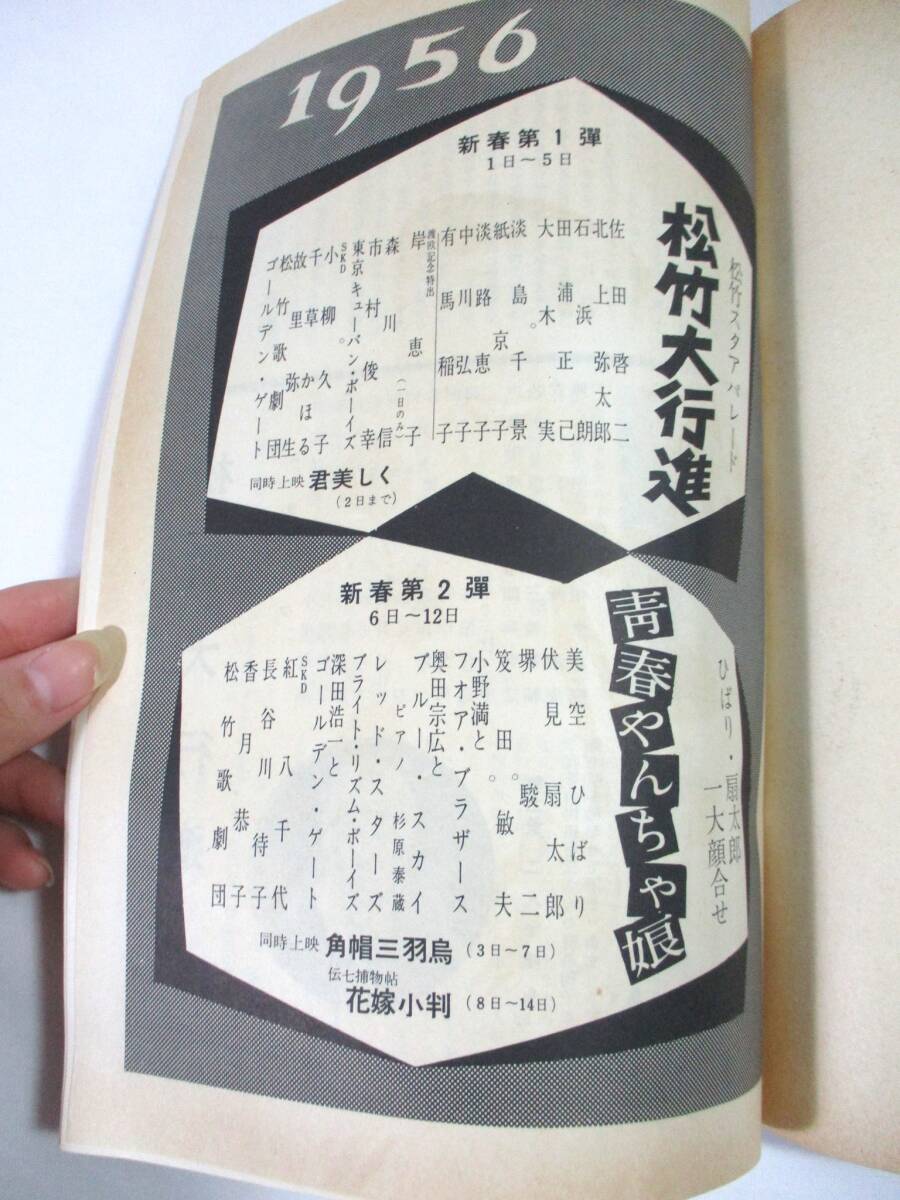 1956
新春第1弾
1日～5日
松竹スタアパレード
松竹大行進
佐田啓二
北上弥太郎
石浜朗
田浦正己
大木実
淡島千景
紙京子
淡路恵子
中川弘子
有馬稲子
渡欧記念特出
岸恵子(一日のみ)
森川信
市村俊幸
東京キューバン・ボーイズ
SKD
小柳久子
千草かほる
故里弥生
松竹歌劇団
ゴールデン・ゲート
同時上映 君美しく
(2日まで)
新春第2弾
6日～12日
ひばり・扇太郎
一大顔合せ
青春やんちゃ娘
美空ひばり
伏見扇太郎
堺駿二
笈田敏夫
小野満と
フォア・ブラザース
奥田宗広と
ブルー・スカイ
ピアノ 杉原泰蔵
レッド・スターズ
ブライト・リズム・ボーイズ
深田浩一と
ゴールデン・ゲート
SKD
紅八千代
長谷川待子
香月恭子
松竹歌劇団
同時上映 角帽三羽烏 (3日～7日)
伝七捕物帖
花嫁小判 (8日～14日)